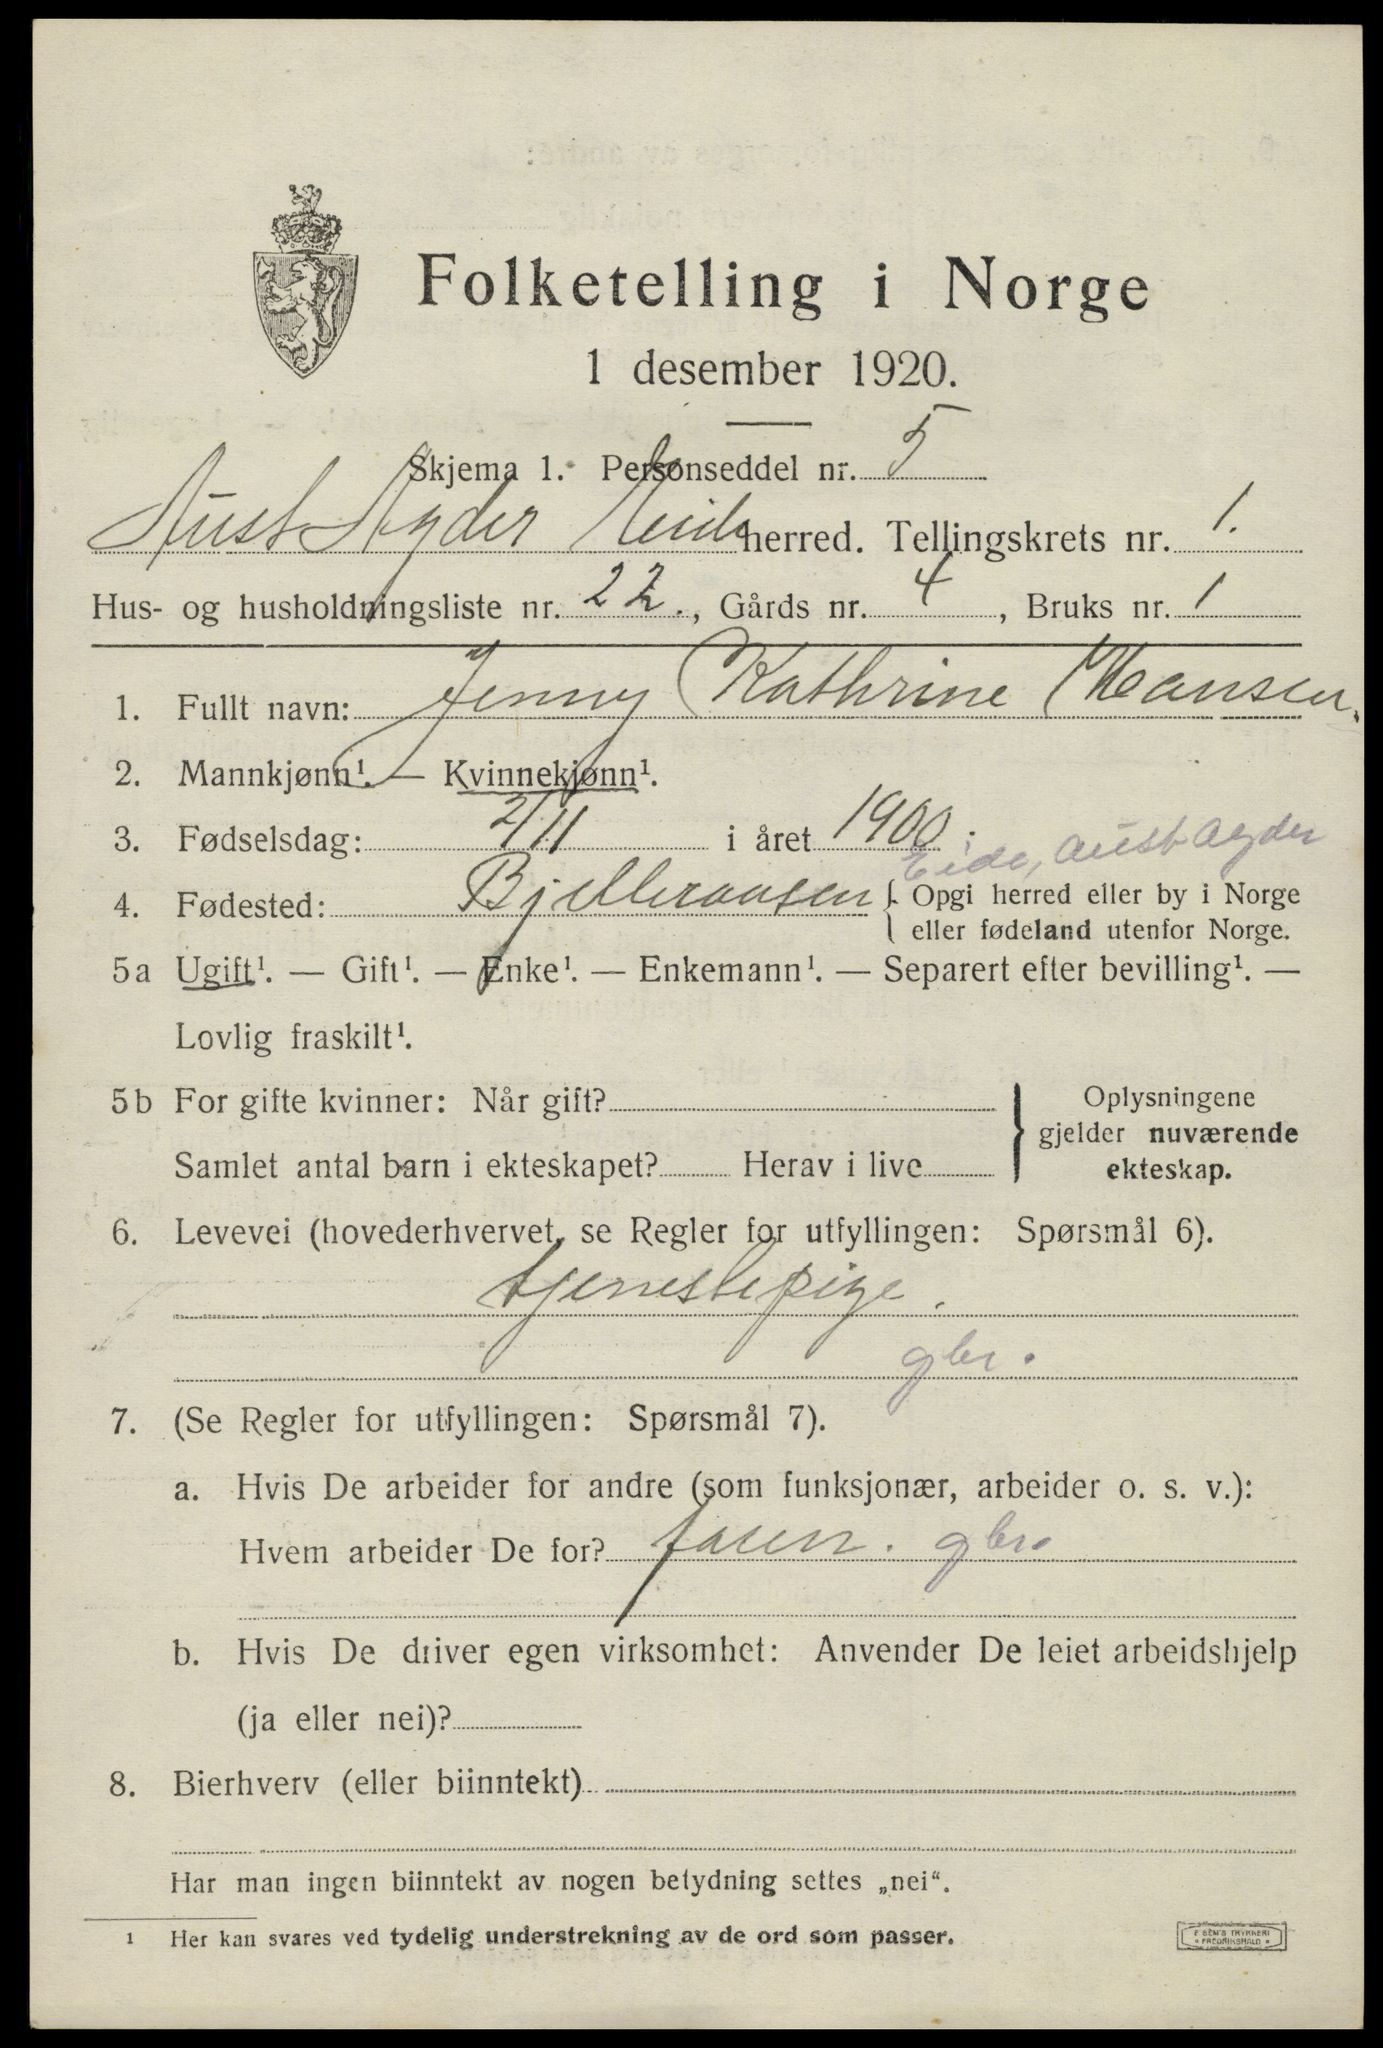 Folketelling i Norge
1 desember 1920.
Skjema 1. Personseddel nr. 5
Aust Agder Eide herred. Tellingskrets nr. 1.
Hus- og husholdningsliste nr. 22., Gårds nr. 4, Bruks nr. 1
1. Fullt navn: Jenny Kathrine Hansen.
2. Mannkjønn¹. — Kvinnekjønn¹.
3. Fødselsdag: 2/11 i året 1900.
Eide, Aust Agder
4. Fødested: Bjelleraasen { Opgi herred eller by i Norge
eller fødeland utenfor Norge.
5a Ugift¹. — Gift¹. — Enke¹. — Enkemann¹. — Separert efter bevilling¹. —
Lovlig fraskilt¹.
5b For gifte kvinner: Når gift? } Oplysningene
gjelder nuværende
Samlet antal barn i ekteskapet? Herav i live ekteskap.
6. Levevei (hovederhvervet, se Regler for utfyllingen: Spørsmål 6).
tjenestepige.
gbr.
7. (Se Regler for utfyllingen: Spørsmål 7).
a. Hvis De arbeider for andre (som funksjonær, arbeider o. s. v.):
Hvem arbeider De for? faren. gbr.
b. Hvis De driver egen virksomhet: Anvender De leiet arbeidshjelp
(ja eller nei)?
8. Bierhverv (eller biinntekt)
Har man ingen biinntekt av nogen betydning settes „nei“.
1 Her kan svares ved tydelig understrekning av de ord som passer.
E SEM'S TRYKKERI
FREDRIKSHALD